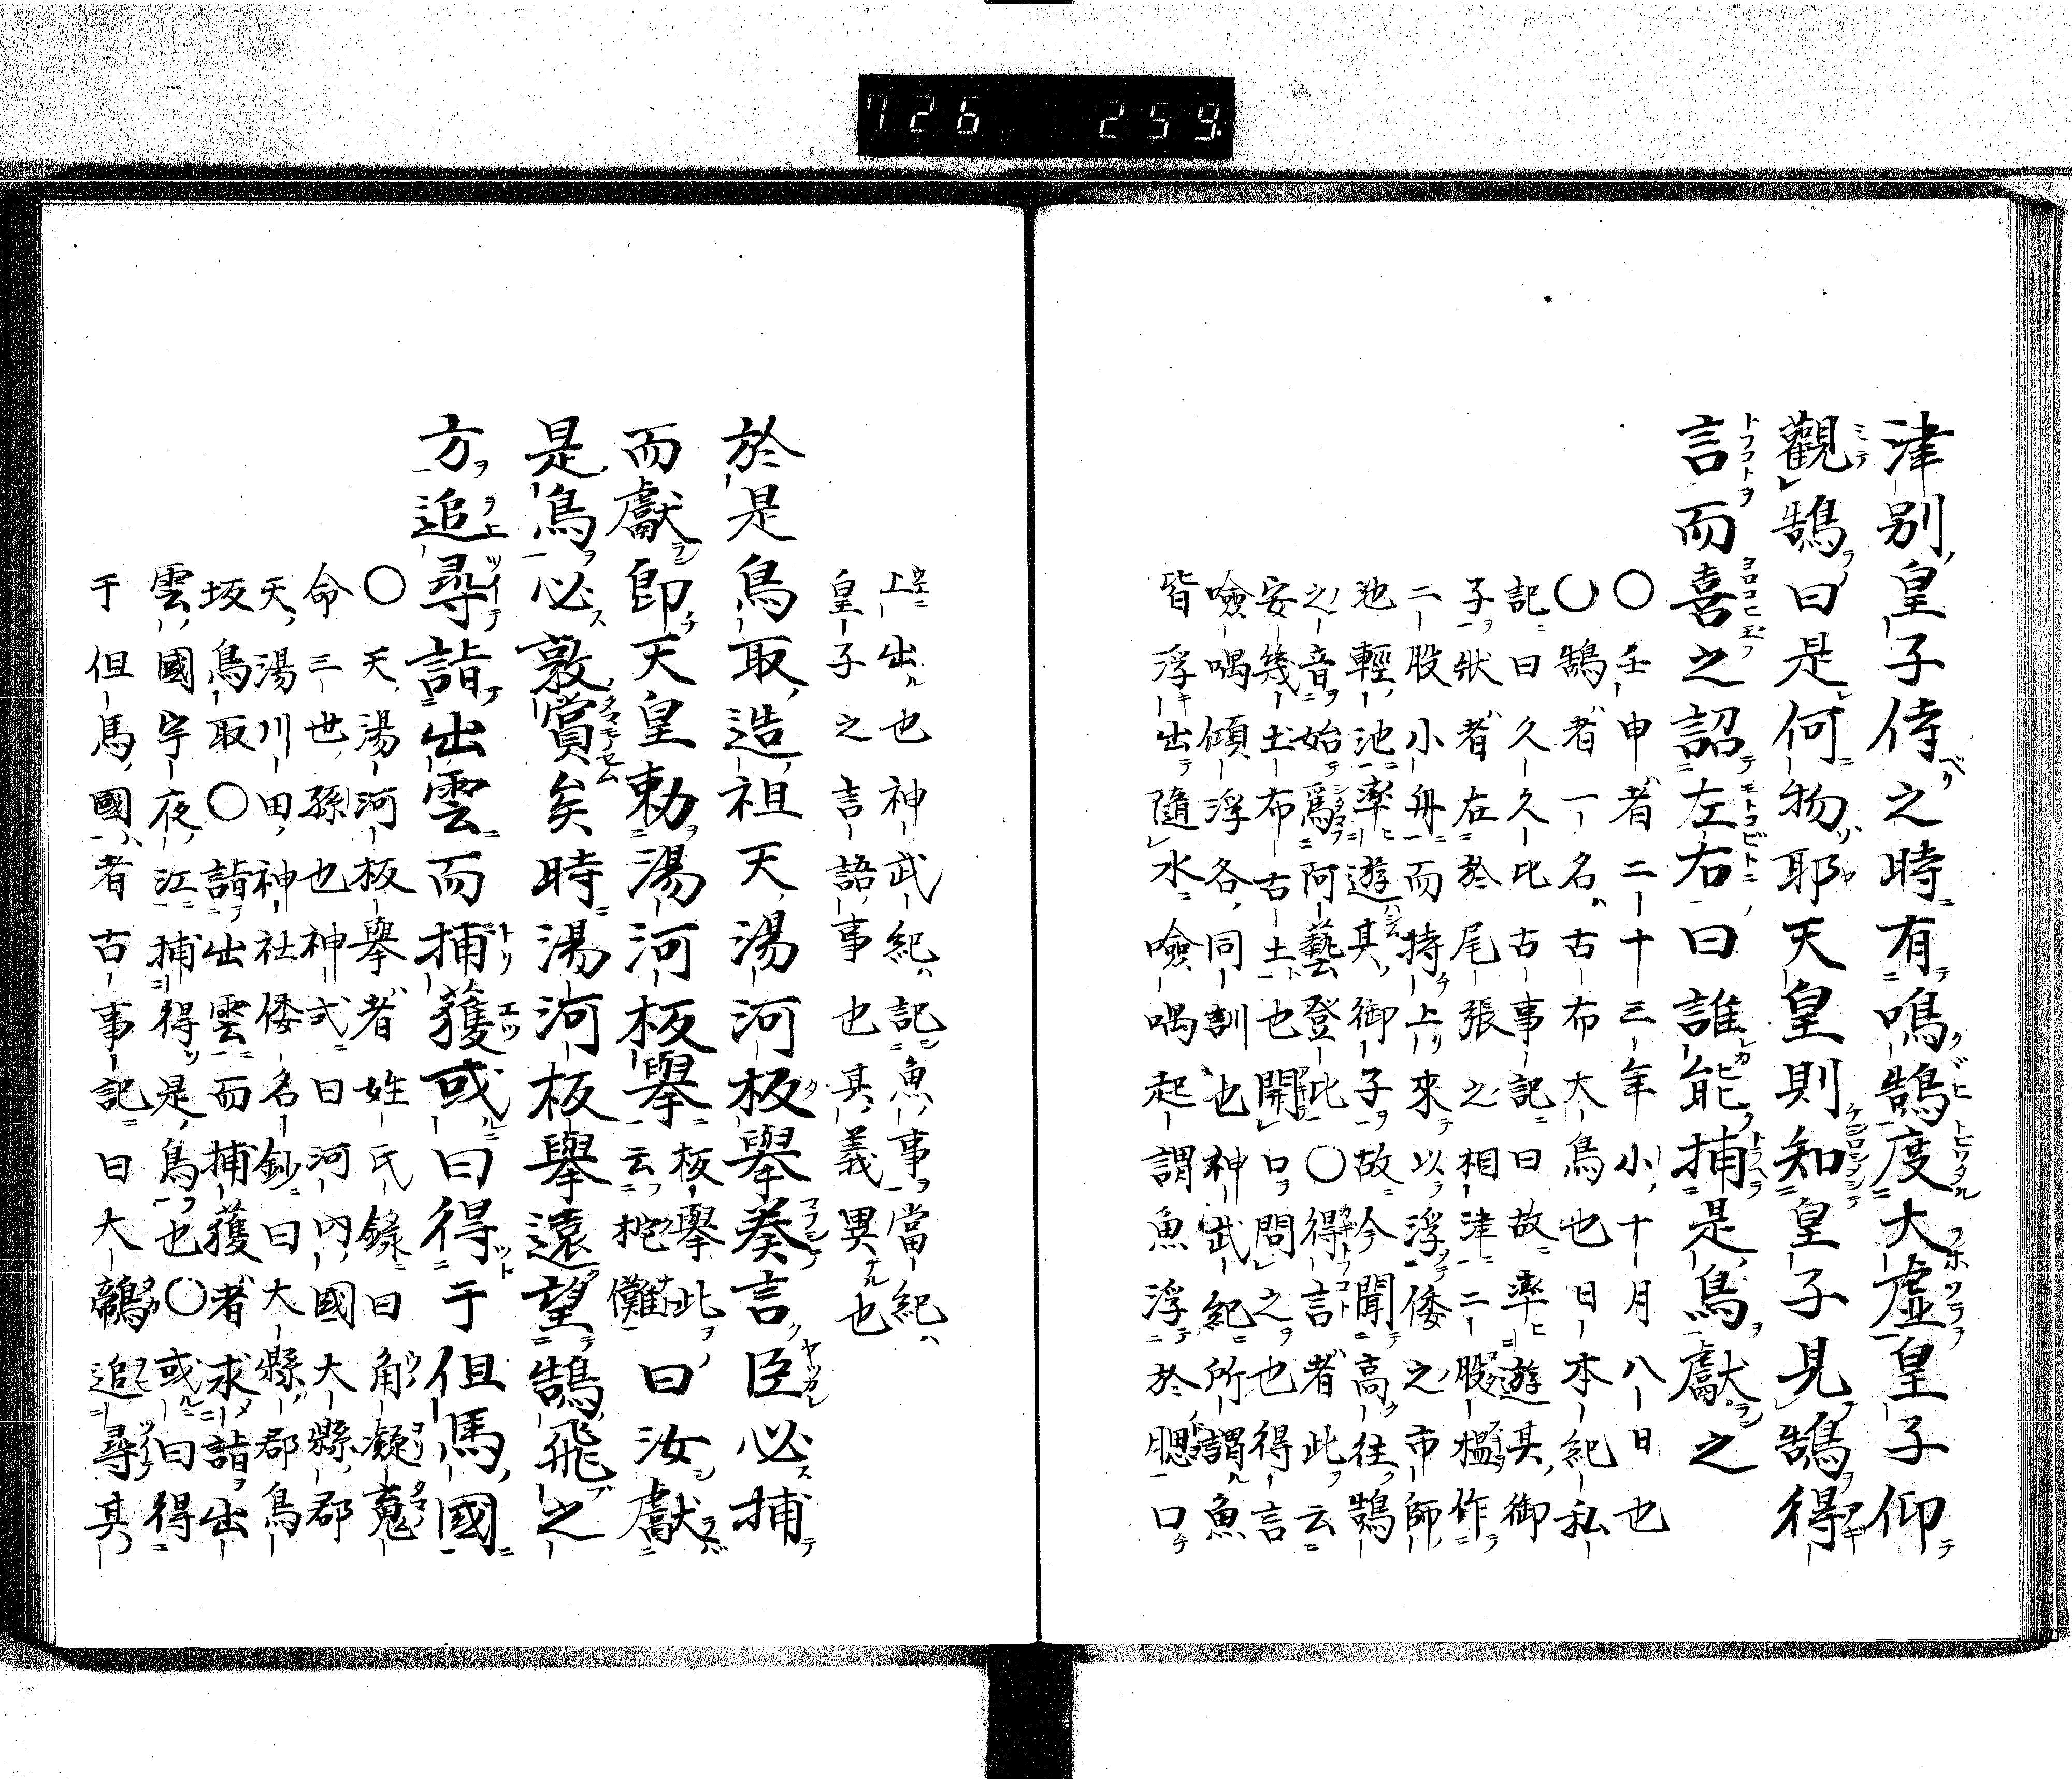 726 259
津別皇子侍之時有鳴鵠度大虛皇子仰
觀鵠曰是何物耶天皇則知皇子見鵠得
言而喜之詔左右曰誰能捕是鳥獻之
〇壬申者二十三年小十月八日也
〇鵠者一名古布大鳥也日本紀私
記曰久久比古事記曰故率遊其御
子狀者在於尾張之相津二股榲作
二股小舟而持上來以浮倭之市師
池輕池率遊其御子故今聞高往鵠
之音始爲阿藝登比〇得言者此云
安幾土布古土也開口問之也得言
噞喁傾浮各同訓也神武紀所謂魚
皆浮出隨水噞喁起謂魚浮於腮口
上出也神武紀記魚事當紀
皇子之言語事也其義異也
於是鳥取造祖天湯河板擧奏言臣必捕
而獻即天皇勅湯河板擧板擧此云柁儺曰汝獻
是鳥必敦賞矣時湯河板擧遠望鵠飛之
方追尋詣出雲而捕獲或曰得于但馬國
〇天湯河板擧者姓氏錄曰角凝䰟
命三世孫也神式曰河內國大縣郡
天湯川田神社倭名鈔曰大縣郡鳥
坂鳥取〇詣出雲而捕獲者求詣出
雲國宇夜江捕得是鳥也〇或曰得
于但馬國者古事記曰大鶙追尋其